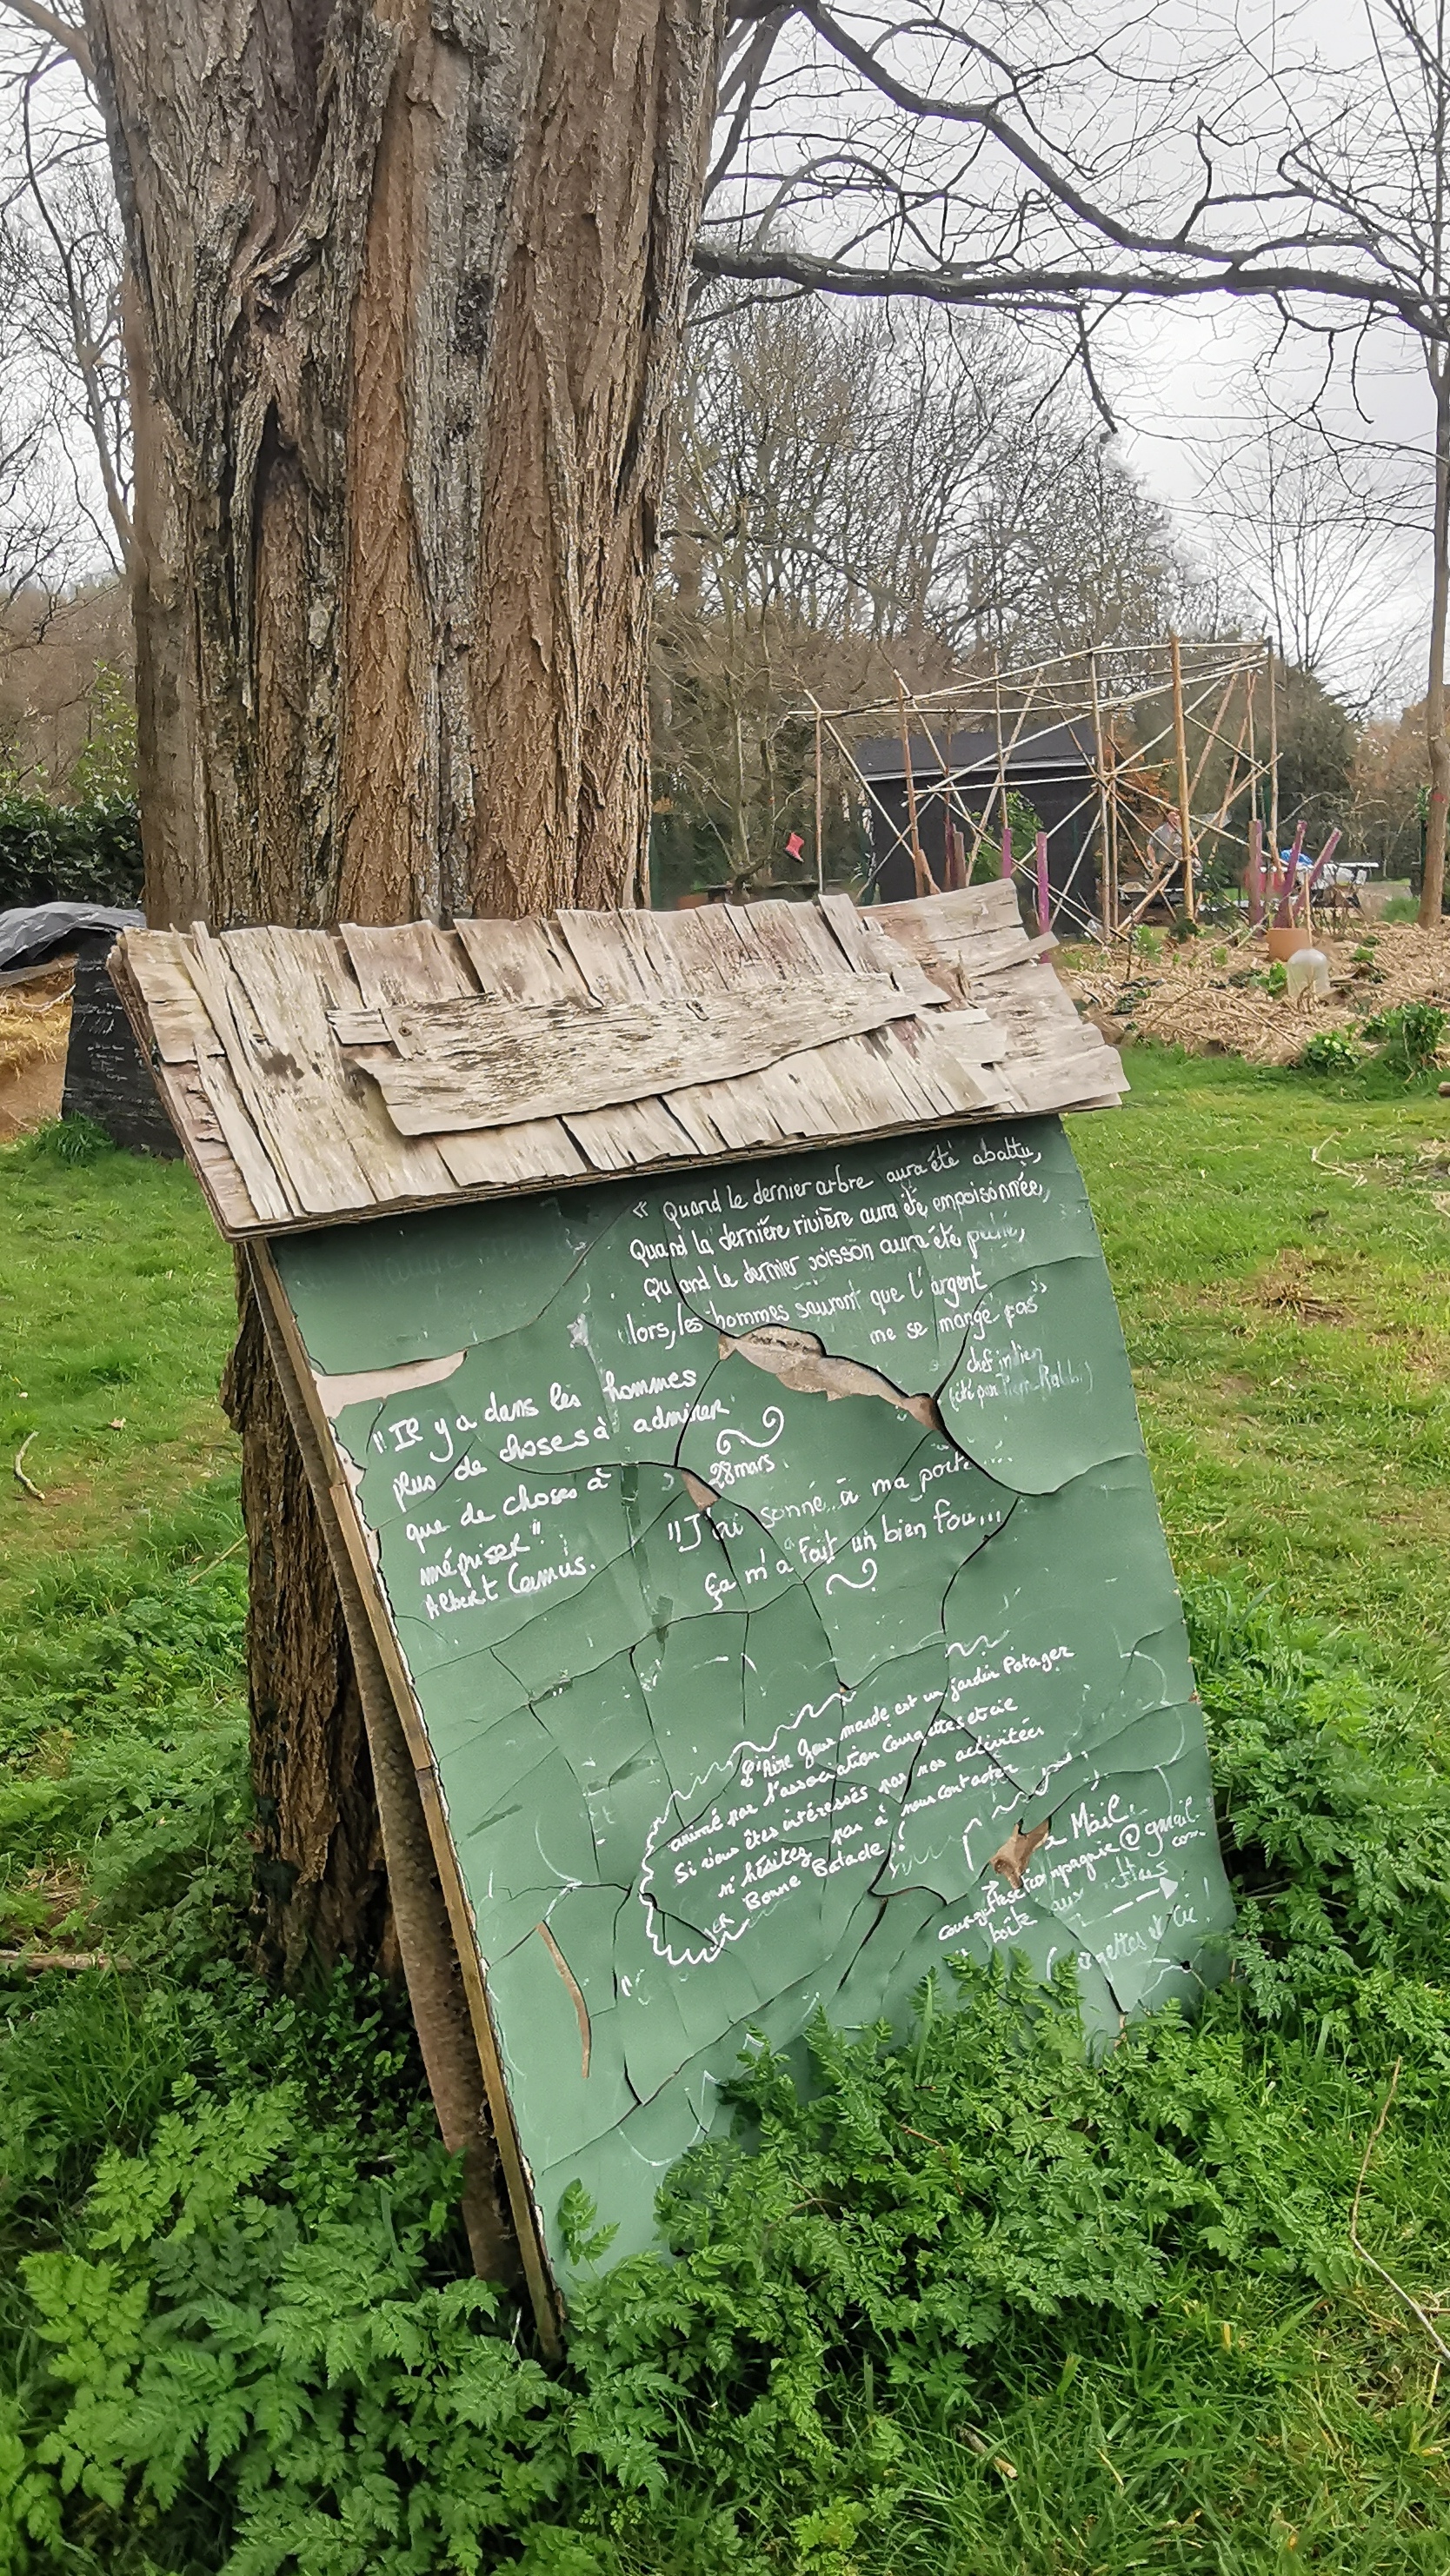 « Quand le dernier arbre aura été abattu,
Quand la dernière rivière aura été empoisonnée,
Quand le dernier poisson aura été pêché,
lors, les hommes sauront que l'argent
ne se mange pas »
chef indien
(cité par Pierre Rabhi)
"Il y a dans les hommes
plus de choses à admirer
que de choses à
mépriser"
Albert Camus.
28 mars
"J'ai sonné à ma porte ...
ça m'a fait un bien fou...
L'Aire Gourmande est un jardin Potager
animé par l'association Courgettes et cie
Si vous êtes intéressés par nos activitées
n'hésitez pas à nous contacter
Bonne Balade!
Mail
courgettesetcompagnie@gmail.
com
boîte aux
Courgettes et Cie!